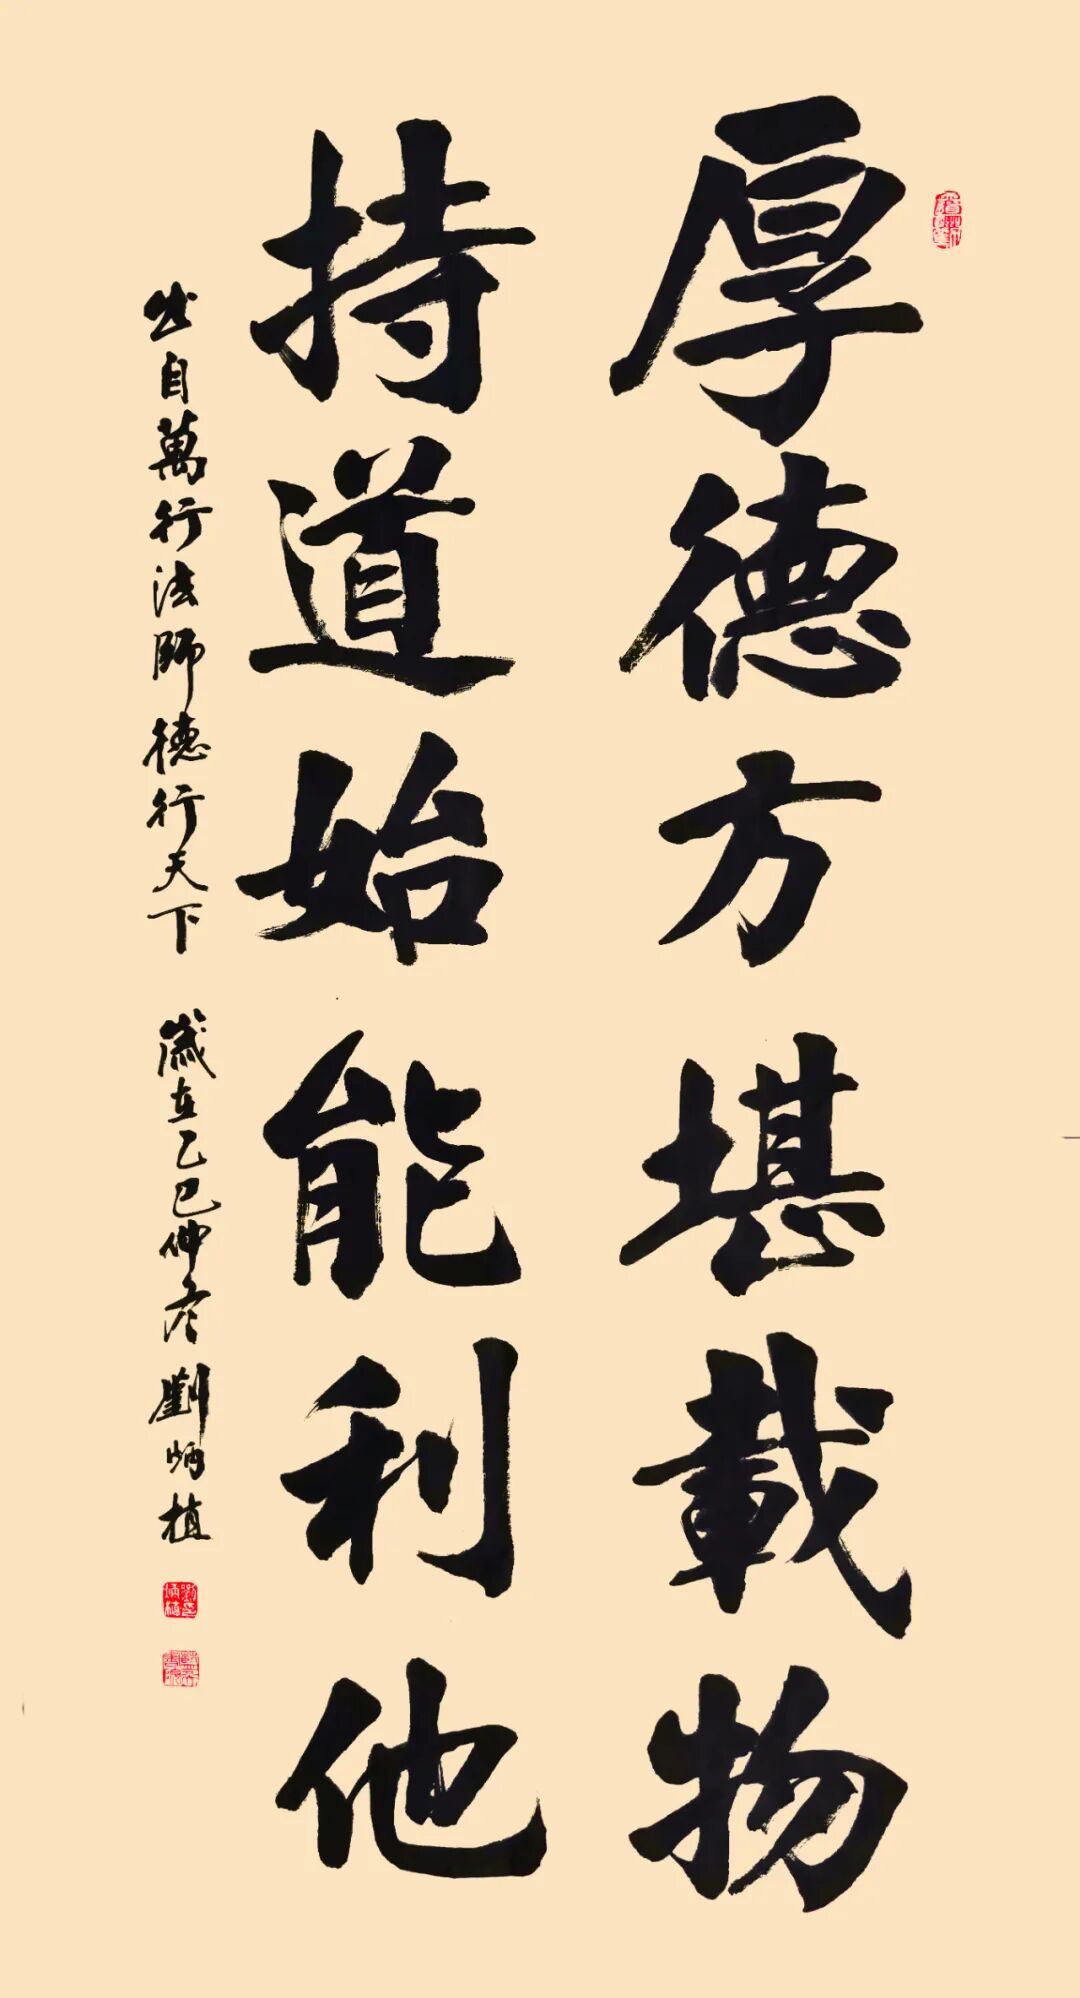 厚德方堪載物
持道始能利他
出自萬行法師德行天下 歲在乙巳仲彥劉炳植